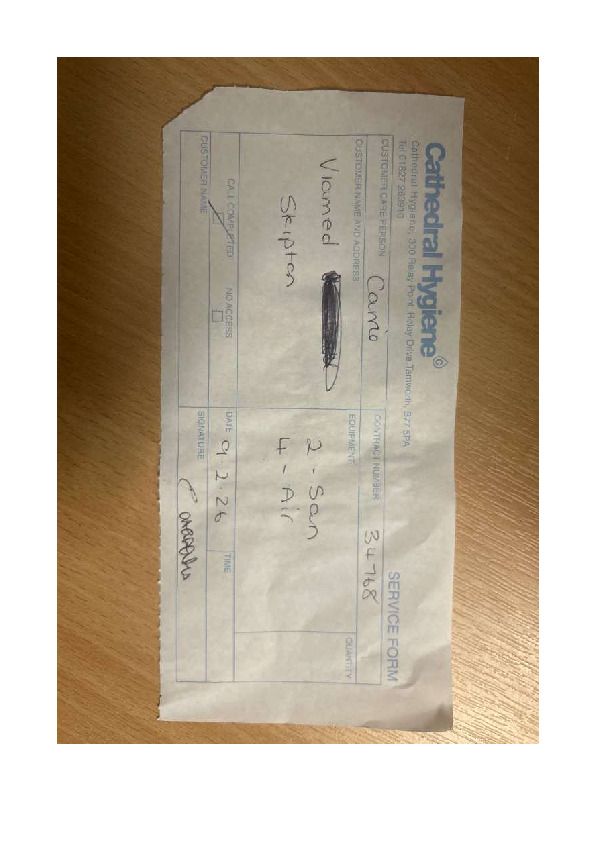 Cathedral Hygiene
Cathedral Hygiene, 300 Relay Point, Relay Drive, Tamworth, B77 5PA
Tel 01827
SERVICE FORM
CUSTOMER CARE PERSON Carrie
CONTRACT NUMBER 34768
CUSTOMER NAME AND ADDRESS
Viamed
Skipton
EQUIPMENT
QUANTITY
2 - San
4 - Air
CALL COMPLETED
NO ACCESS
DATE 9.2.26
TIME
CUSTOMER NAME
SIGNATURE